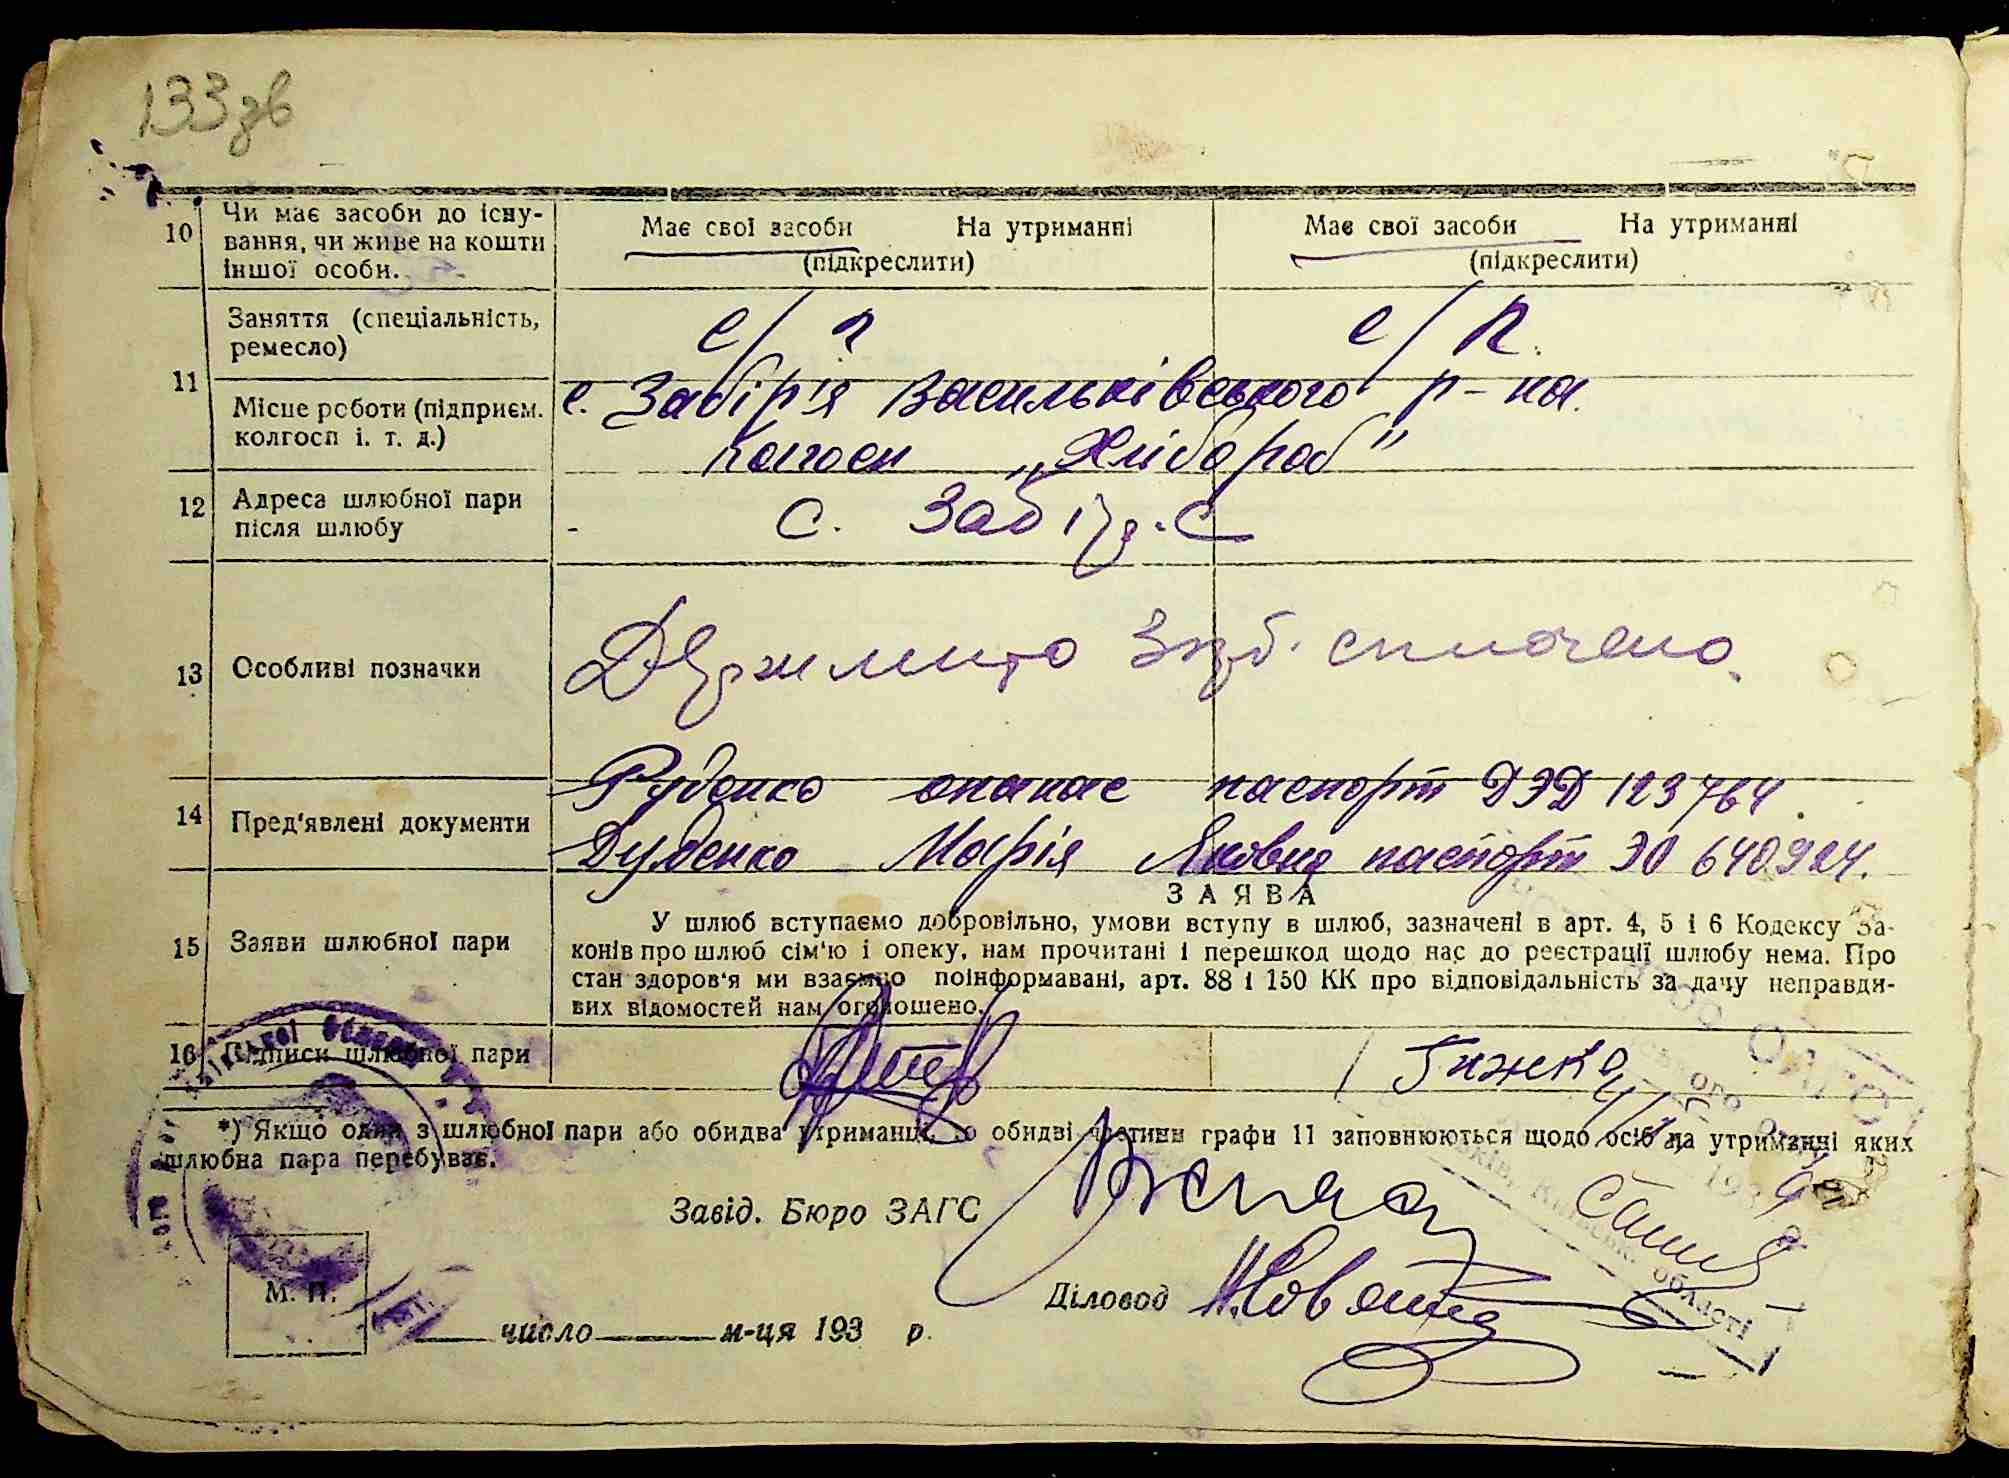 133зв
10 Чи має засоби до існу-
вання, чи живе на кошти
іншої особи.
Має свої засоби На утриманні
(підкреслити)
Має свої засоби На утриманні
(підкреслити)
11 Заняття (спеціальність,
ремесло)
с/г с/г.
Місце роботи (підприєм.
колгосп і. т. д.)
с. Забір'я Васильківського р-на.
Колгосп „Хлібороб"
12 Адреса шлюбної пари
після шлюбу
с. Забір'є
13 Особливі позначки
Держмито 3 крб. сплочено.
14 Пред'явлені документи
Руденко опанас паспорт ДЭД 123764.
Дуденко Марія Яковна паспорт ЭО 640924.
15 Заяви шлюбної пари
ЗАЯВА
У шлюб вступаємо добровільно, умови вступу в шлюб, зазначені в арт. 4, 5 і 6 Кодексу За-
конів про шлюб сім'ю і опеку, нам прочитані і перешкод щодо нас до реєстрації шлюбу нема. Про
стан здоров'я ми взаємно поінформавані, арт. 88 і 150 КК про відповідальність за дачу неправди-
вих відомостей нам оголошено.
16 Підписи шлюбної пари
*) Якщо один з шлюбної пари або обидва утриманці, то обидві частини графи 11 заповнюються щодо осіб на утриманні яких
шлюбна пара перебуває.
Завід. Бюро ЗАГС
Діловод
М. П.
число м-ця 193 р.
області